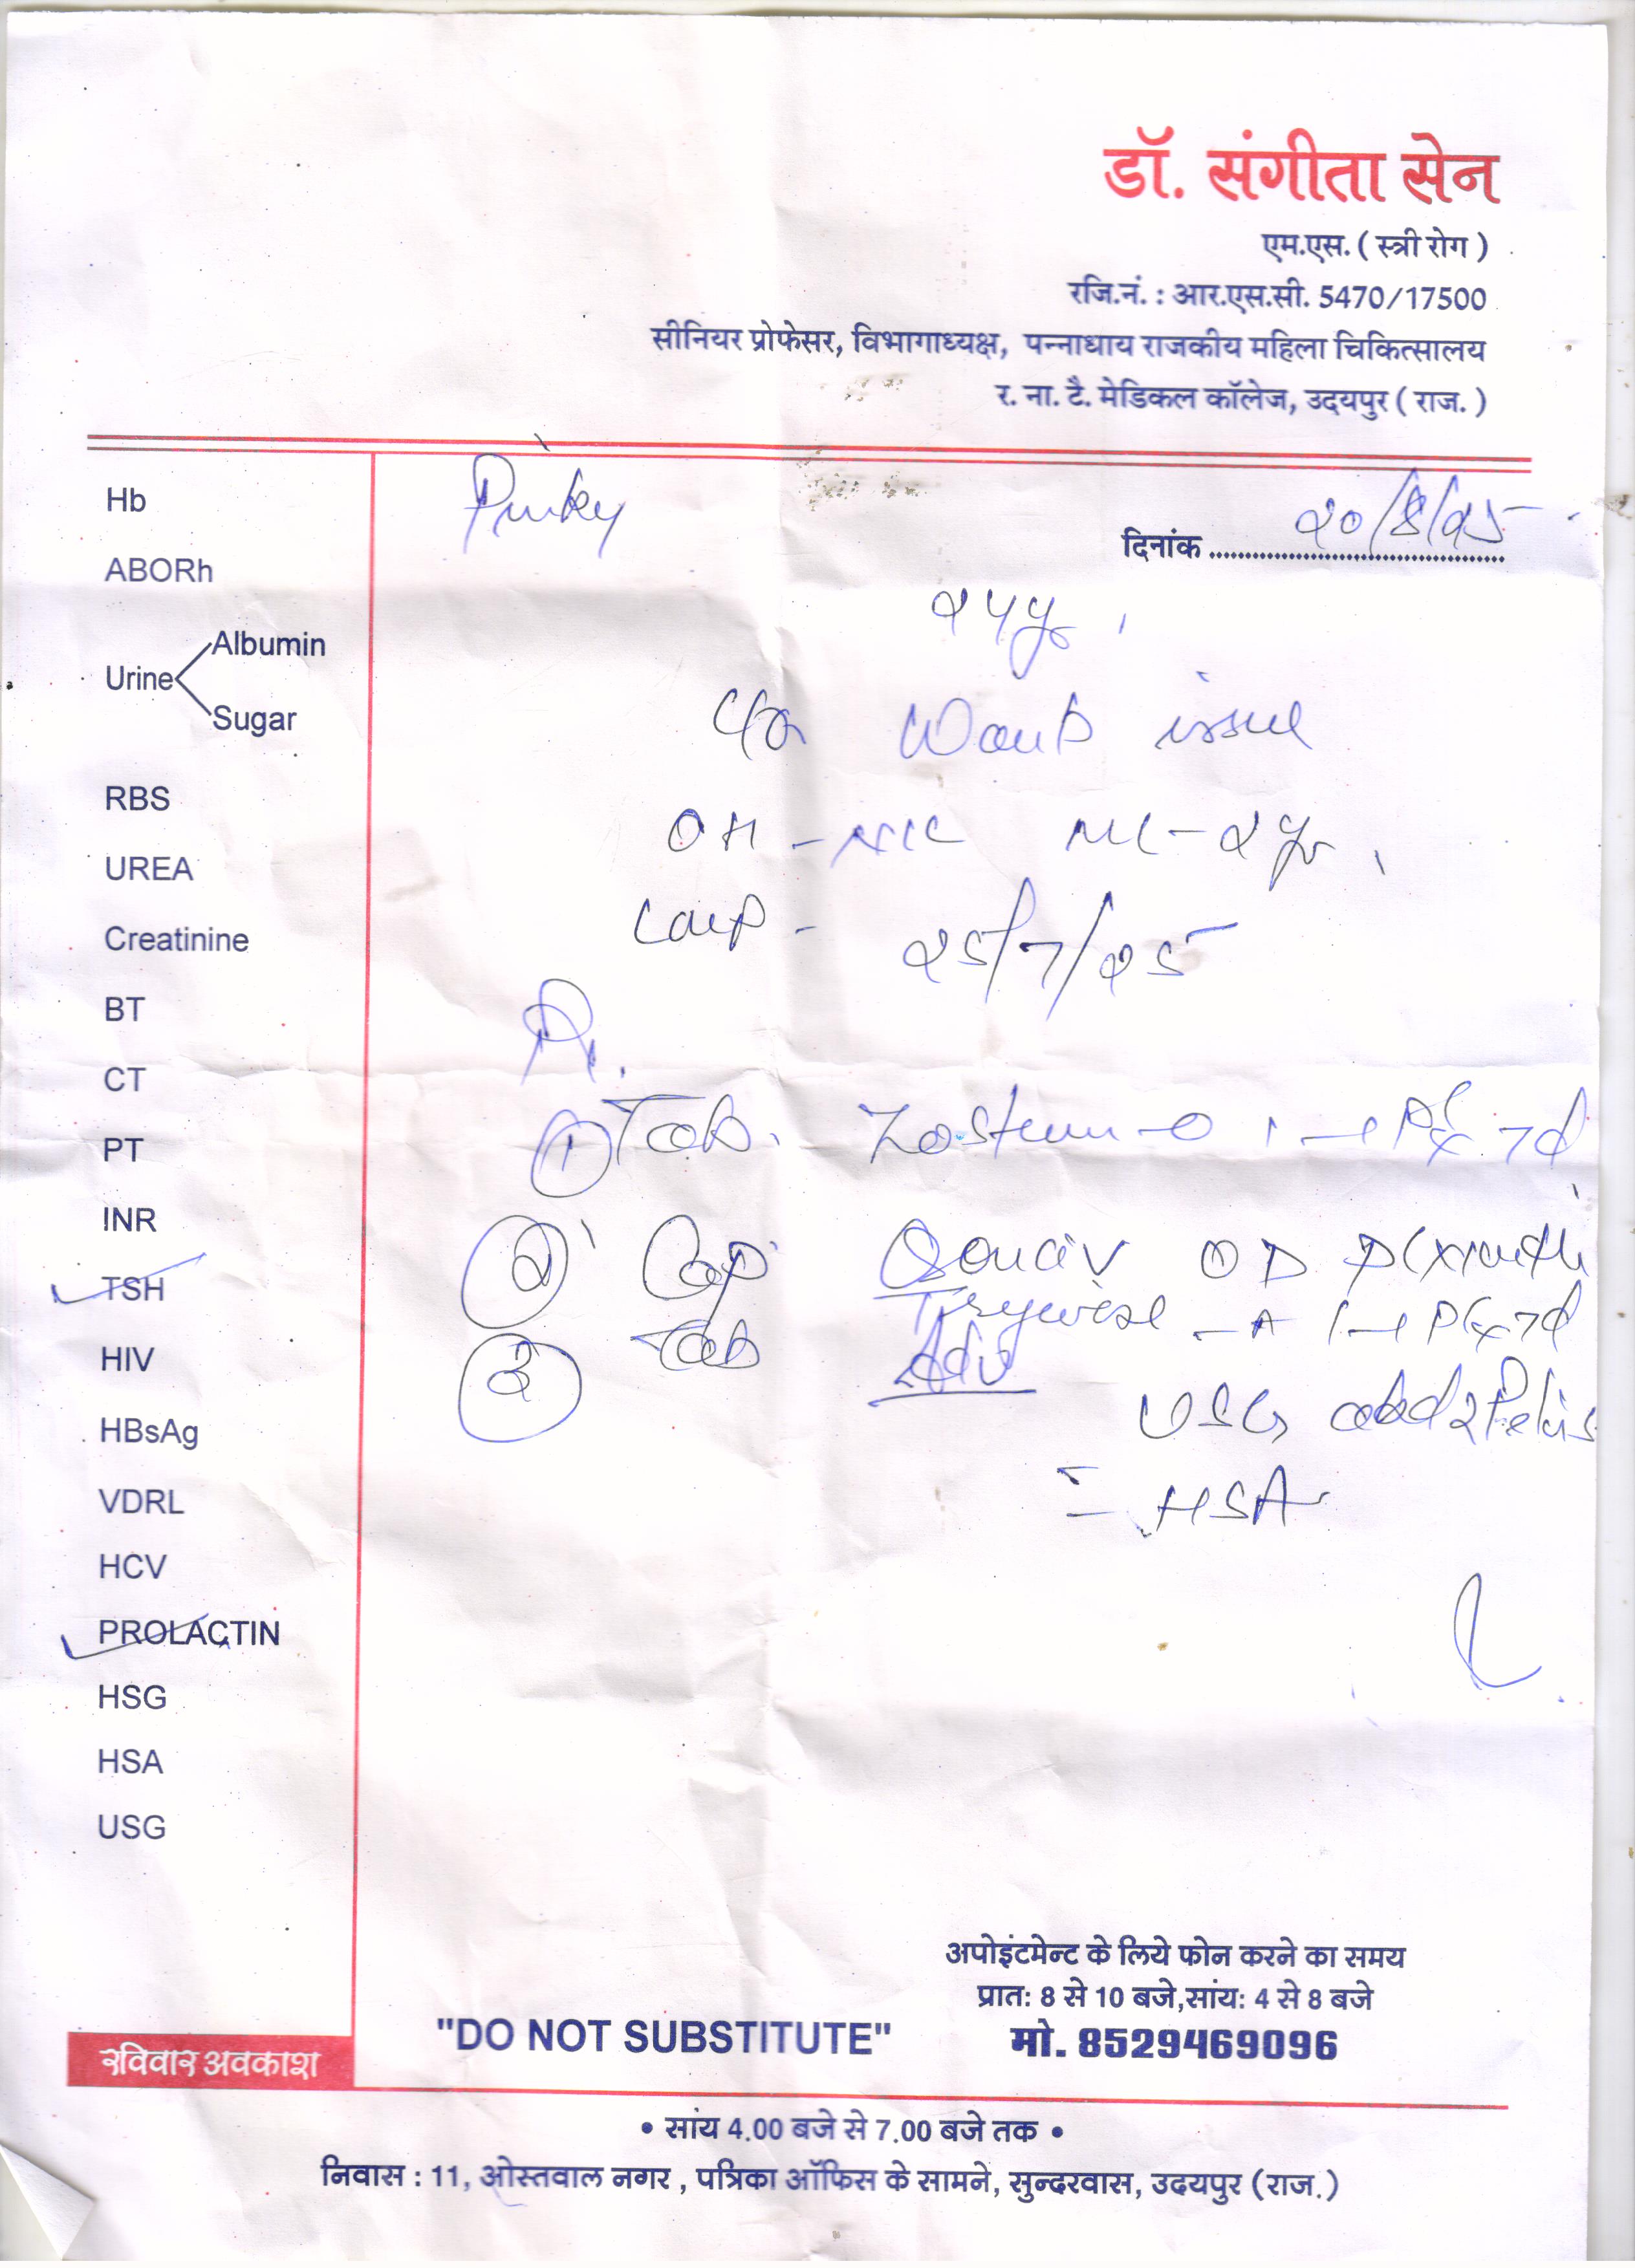 डॉ. संगीता सेन
एम.एस. ( स्त्री रोग )
रजि.नं. : आर.एस.सी. 5470/17500
सीनियर प्रोफेसर, विभागाध्यक्ष, पन्नाधाय राजकीय महिला चिकित्सालय
र. ना. टै. मेडिकल कॉलेज, उदयपुर ( राज. )
Pinky
दिनांक 20/8/25
Hb
ABORh
Urine Albumin
Sugar
RBS
UREA
Creatinine
BT
CT
PT
INR
TSH
HIV
HBsAg
VDRL
HCV
PROLACTIN
HSG
HSA
USG
24yr
Wants issue
OH - Nil ML - 2yr
LMP - 25/7/25
① Tab. 1-1 x 7d
② Cap OD x 1 month
③ Tab 1-1 x 7d
Adv
USG abd & Pelvis
- HSA
"DO NOT SUBSTITUTE"
अपोइंटमेन्ट के लिये फोन करने का समय
प्रात: 8 से 10 बजे,सांय: 4 से 8 बजे
मो. 8529469096
रविवार अवकाश
• सांय 4.00 बजे से 7.00 बजे तक •
निवास : 11, ओस्तवाल नगर , पत्रिका ऑफिस के सामने, सुन्दरवास, उदयपुर (राज.)